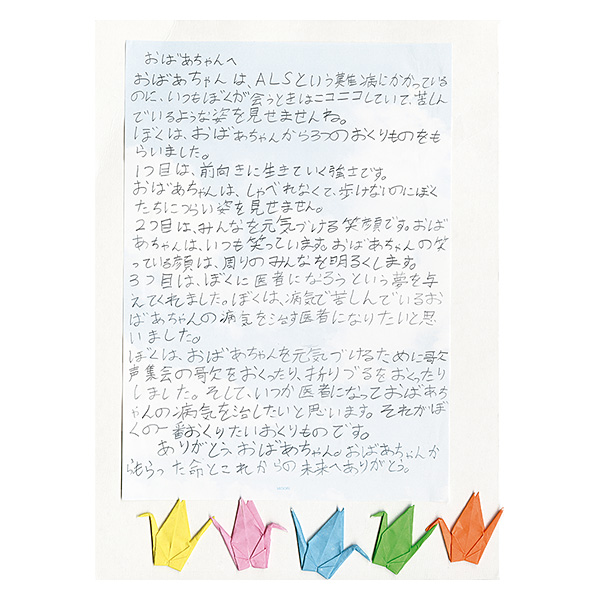 おばあちゃんへ
おばあちゃんは、ALSという難病にかかっている
のに、いつもぼくが会うときはニコニコしていて、苦しん
でいるような姿を見せませんね。
ぼくは、おばあちゃんから3つのおくりものをも
らいました。
1つ目は、前向きに生きていく強さです。
おばあちゃんは、しゃべれなくて、歩けないのにぼく
たちにつらい姿を見せません。
2つ目は、みんなを元気づける笑顔です。おば
あちゃんは、いつも笑っています。おばあちゃんの笑
っている顔は、周りのみんなを明るくします。
3つ目は、ぼくに医者になろうという夢を与
えてくれました。ぼくは、病気で苦しんでいるお
ばあちゃんの病気を治す医者になりたいと思
いました。
ぼくは、おばあちゃんを元気づけるために歌
声集会の歌をおくったり、折りづるをおくったり
しました。そして、いつか医者になっておばあち
ゃんの病気を治したいと思います。それがぼ
くの一番おくりたいおくりものです。
ありがとう、おばあちゃん。おばあちゃんか
らもらった命とこれからの未来へありがとう。